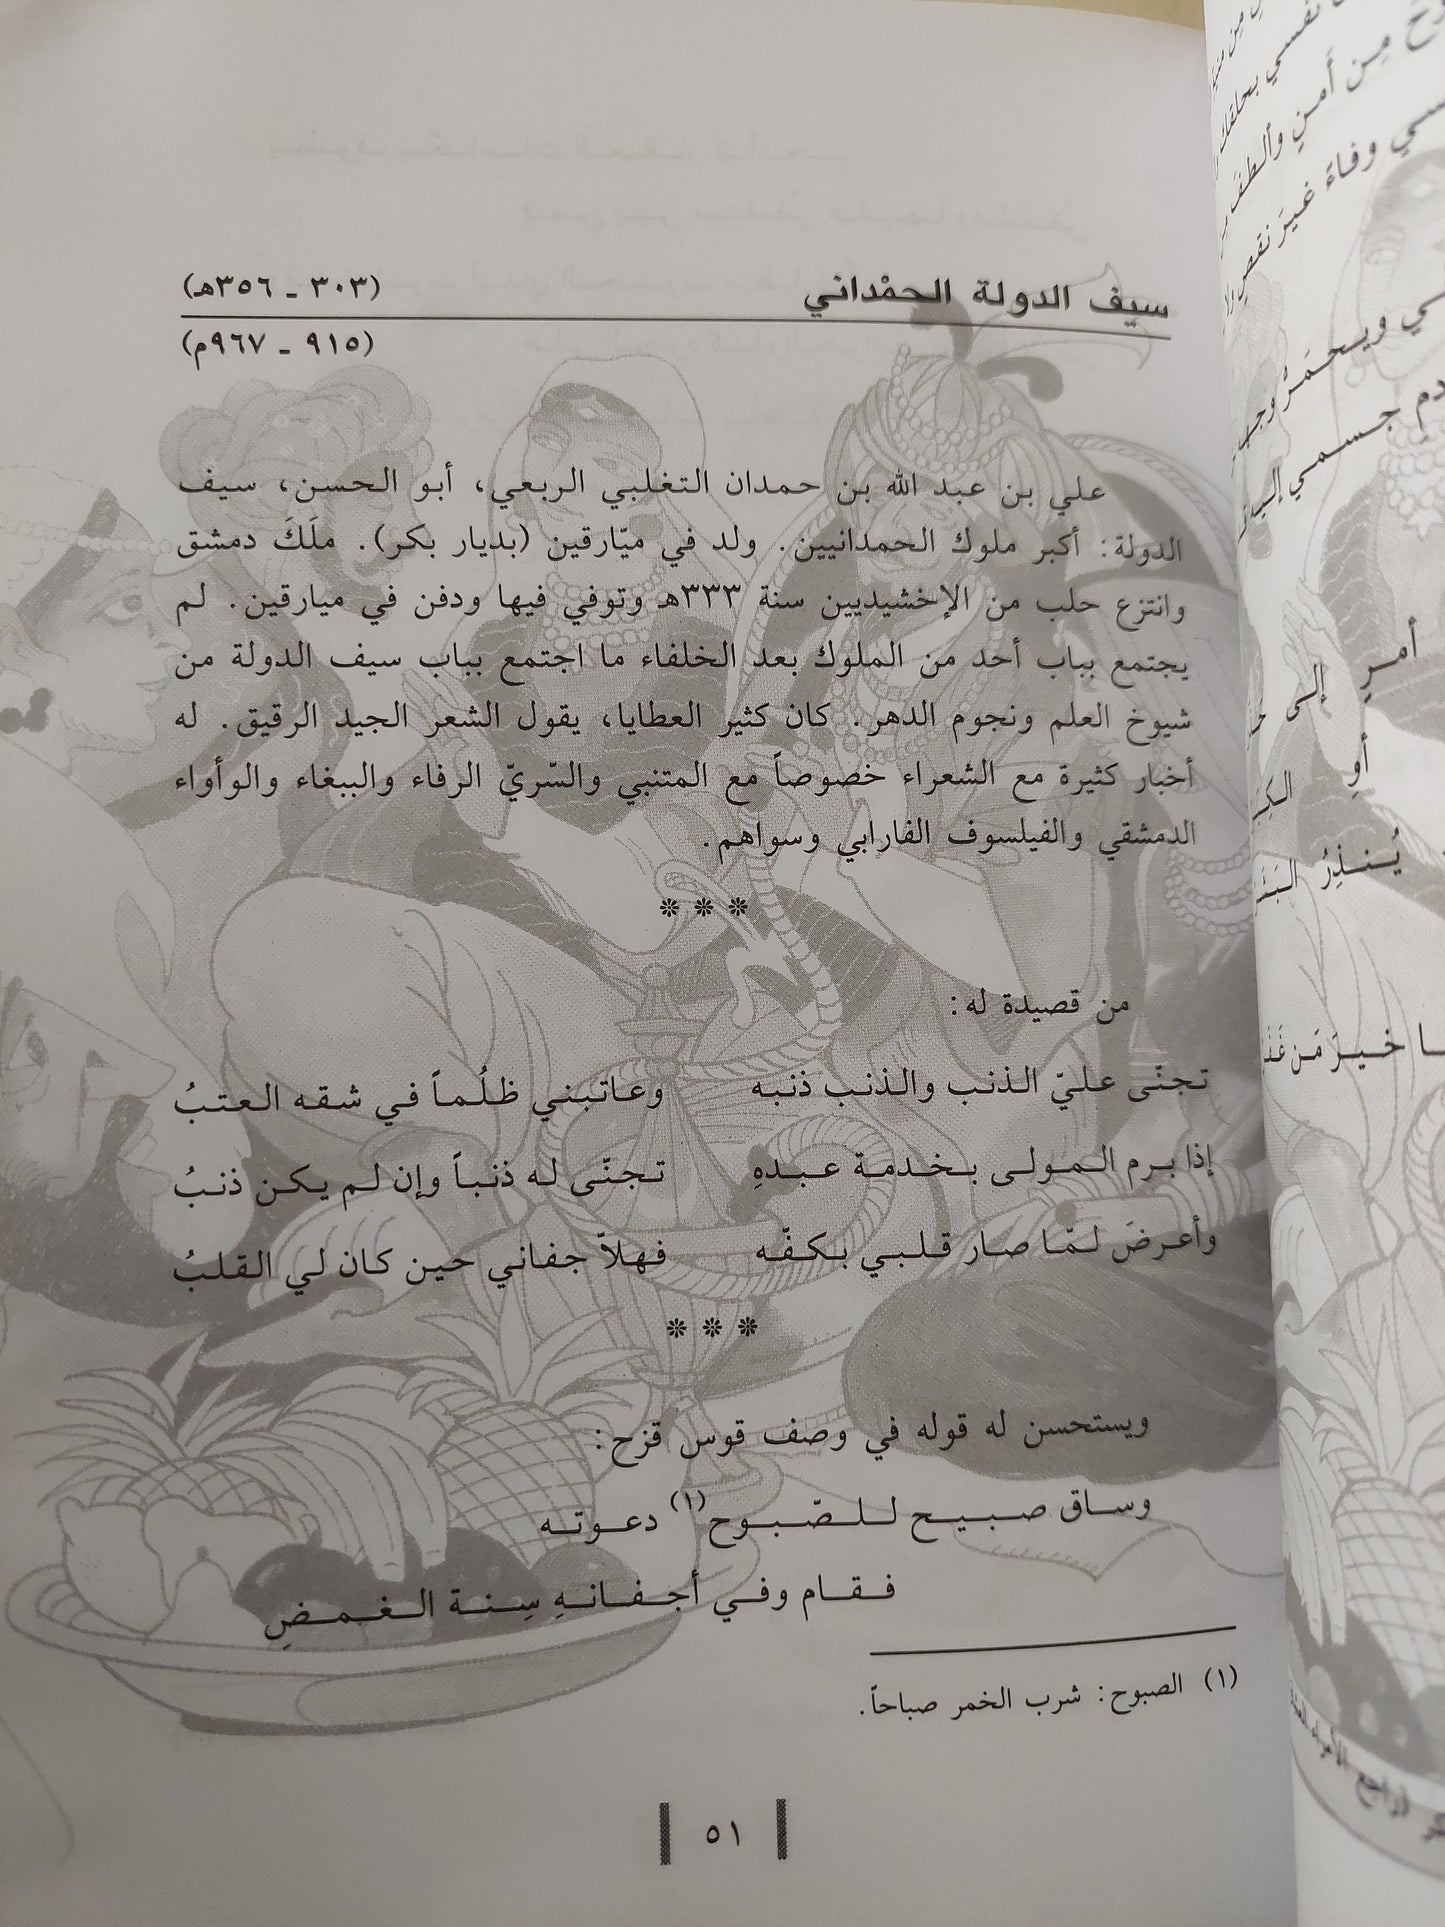 سيف الدولة الحمْداني (٣٠٣ - ٣٥٦هـ)
(٩١٥ - ٩٦٧م)
علي بن عبد الله بن حمدان التغلبي الربعي، أبو الحسن، سيف
الدولة: أكبر ملوك الحمدانيين. ولد في ميّارقين (بديار بكر). ملَكَ دمشق
وانتزع حلب من الإخشيديين سنة ٣٣٣هـ وتوفي فيها ودفن في ميارقين. لم
يجتمع بباب أحد من الملوك بعد الخلفاء ما اجتمع بباب سيف الدولة من
شيوخ العلم ونجوم الدهر. كان كثير العطايا، يقول الشعر الجيد الرقيق. له
أخبار كثيرة مع الشعراء خصوصاً مع المتنبي والسّريّ الرفاء والببغاء والوأواء
الدمشقي والفيلسوف الفارابي وسواهم.
❊ ❊ ❊
من قصيدة له:
تجنّى عليّ الذنب والذنب ذنبه وعاتبني ظلُماً في شقه العتبُ
إذا برم المولى بخدمة عبدهِ تجنّى له ذنباً وإن لم يكن ذنبُ
وأعرضَ لمّا صار قلبي بكفّه فهلاّ جفاني حين كان لي القلبُ
❊ ❊ ❊
ويستحسن له قوله في وصف قوس قزح:
وساق صبيح للصّبوح(١) دعوته
فقام وفي أجفانهِ سِنة الغمضِ
(١) الصبوح: شرب الخمر صباحاً.
٥١
نفسي بحلقك
مِن أمنٍ وألطفَ
وفاءَ غيرَ نقصٍ
ويحمَرُّ
دمِ جسمي
أمرٍ إلى
أوِ
يُنذِرُ
خيرَ مَن